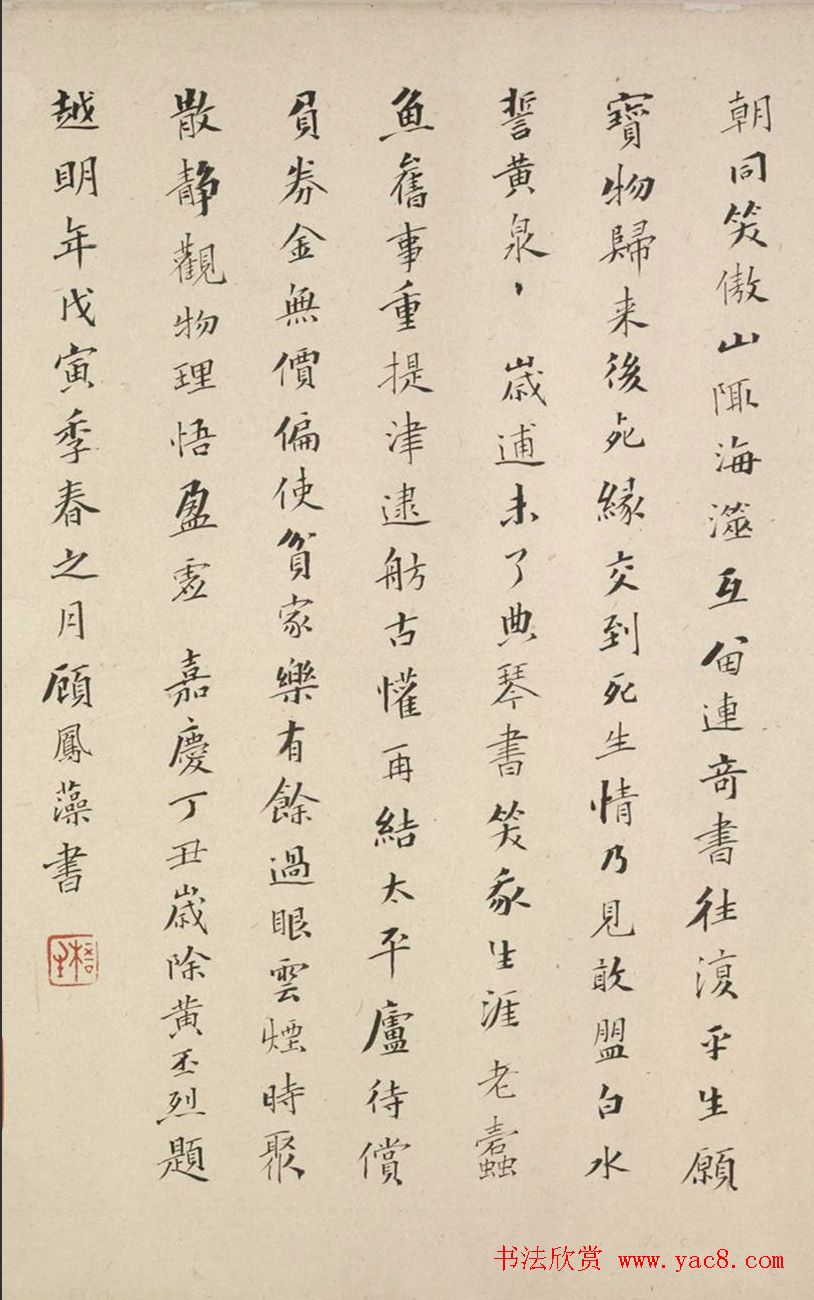 朝同笑傲山陬海澨互留連奇書往復平生願
寶物歸来後死緣交到死生情乃見敢盟白水
誓黄泉、　歲逋未了典琴書笑我生涯老蠹
魚舊事重提津逮舫古懽再結太平廬待償
負券金無價偏使貧家樂有餘過眼雲煙時聚
散静觀物理悟盈虛　嘉慶丁丑歲除黄丕烈題
越明年戊寅季春之月顧鳳藻書
书法欣赏 www.yac8.com